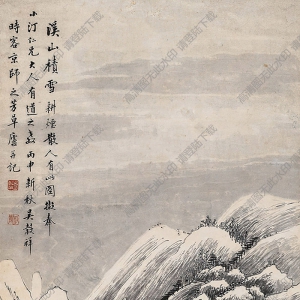 溪山積雪耕煙散人有此圖擬奉
小汀仁兄大人有道之鑒丙申新秋吴穀祥
時客京師之芳草廬并記